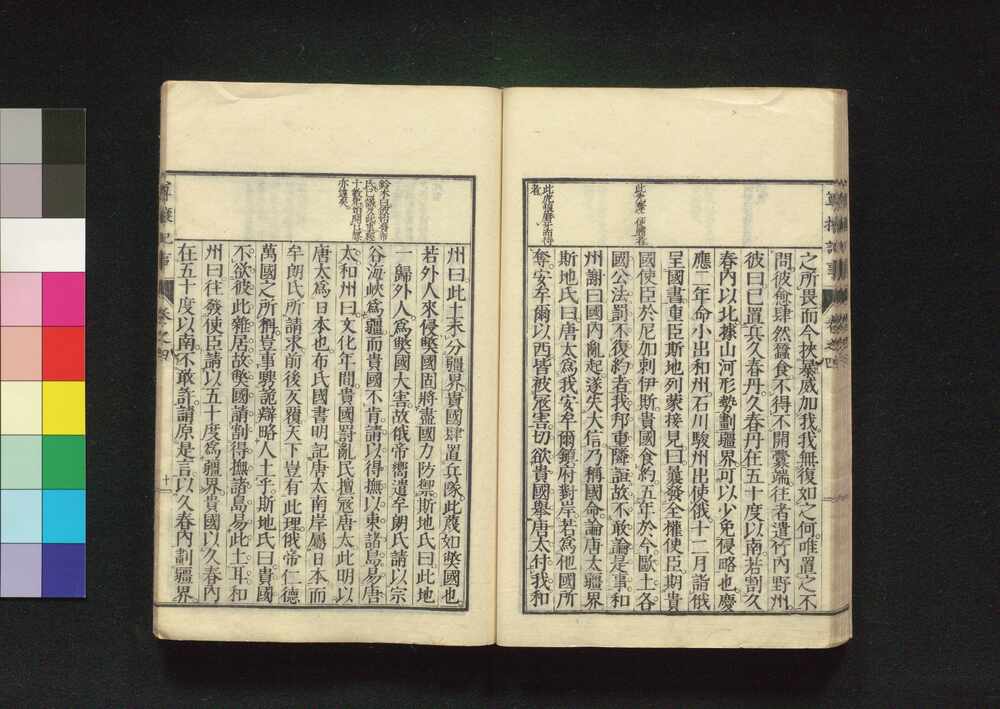 之所畏而今挾暴威加我我無復如之何唯置之不
問彼愈肆然蠶食不得不開釁端往者遣竹內野州
彼曰已置兵久春丹久春丹在五十度以南若割久
春內以北據山河形勢劃疆界可以少免侵略也慶
應二年命小出和州石川駿州出使俄十二月詣俄
呈國書重臣斯地列蒙接見曰曩發全權使臣期貴
國使臣於尼加剌伊斯貴國食約五年於今歐土各
國公法罰不復約者我邦重隣誼故不敢論是事和
州謝曰國內亂起遂失大信乃稱國命論唐太疆界
斯地氏曰唐太爲我安牟爾鎮府對岸若爲他國所
奪安牟爾以西皆被寇害切欲貴國擧唐太付我和
州曰此土未分疆界貴國肆置兵隊此蔑如獘國也
若外人來侵獘國固將盡國力防禦斯地氏曰此地
一歸外人爲獘國大害故俄帝嚮遣牟朗氏請以宗
谷海峽爲疆而貴國不肯請以得撫以東諸島易唐
太和州曰文化年間貴國罸亂民擅寇唐太此明以
唐太爲日本也布氏國書明記唐太南岸屬日本而
牟朗氏所請求前後反覆天下豈有此理俄帝仁德
萬國之所稱豈事騁詭辯略人土乎斯地氏曰貴國
不欲彼此雜居故獘國請割得撫諸島易此土耳和
州曰往發使臣請以五十度爲疆界貴國以久春內
在五十度以南不敢許請原是言以久春內劃疆界
卷之四
十